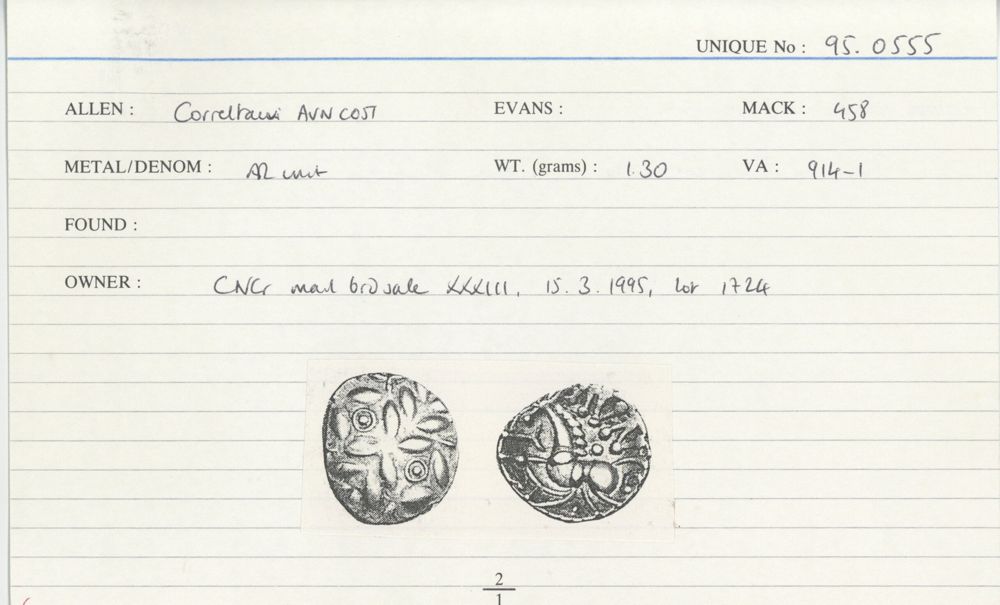 UNIQUE No : 95.0555
ALLEN : Correltauvi AVN COST EVANS : MACK : 458
METAL/DENOM : AR unit WT. (grams) : 1.30 VA : 914-1
FOUND :
OWNER : CNG mail bid sale XXXIII, 15.3.1995, lot 1724
2
1